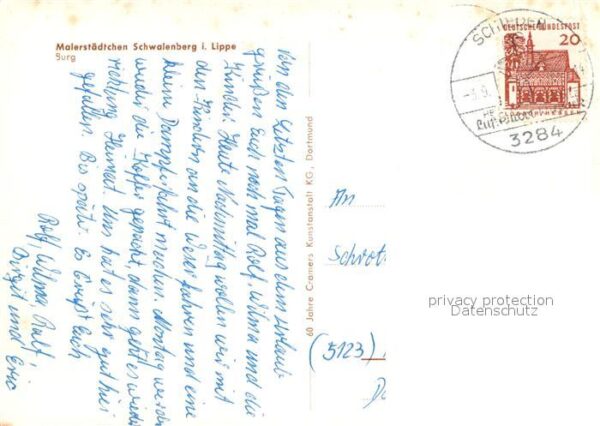 Malerstädtchen Schwalenberg i. Lippe
Burg
Von den letzten Tagen aus dem Urlaub
grüßen Euch noch mal Rolf, Wilma und die
Kinder. Heute Nachmittag wollen wir mit
den Kindern an die Weser fahren und eine
kleine Dampferfahrt machen. Montag werden
wieder die Koffer gepackt, dann geht es wieder
richtung Heimat. Uns hat es sehr gut hier
gefallen. Bis später. Es Grüßt Euch
Rolf, Wilma, Ralf,
Birgit und Eric
60 Jahre Cramers Kunstanstalt KG., Dortmund
SCHIEDER
DEUTSCHE BUNDESPOST
20
3284
An
Schrot
(5123)
privacy protection
Datenschutz